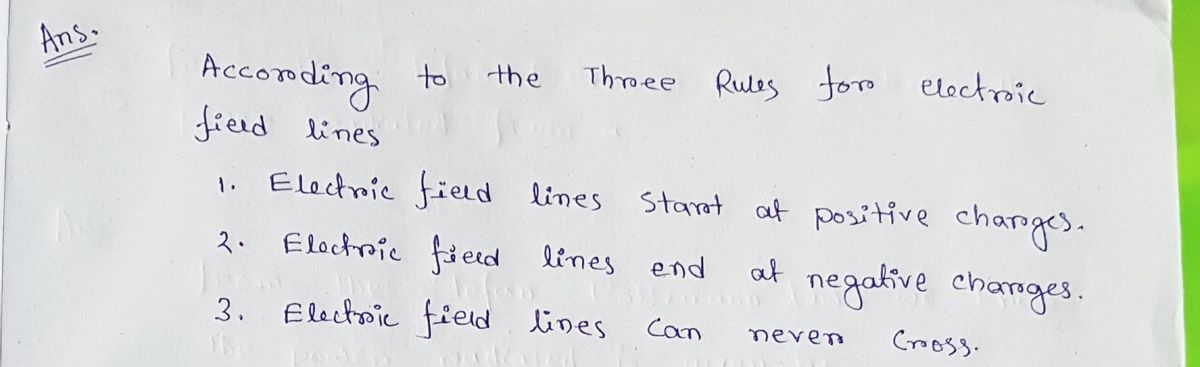 Ans.
According to the Three Rules for electric
field lines
1. Electric field lines start at positive charges.
2. Electric field lines end at negative charges.
3. Electric field lines can never cross.